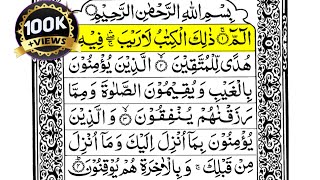 100K
+VIEWS
بِسْمِ اللّٰهِ الرَّحْمٰنِ الرَّحِيْمِ
الٓمّٓ ۚ ذٰلِكَ الْكِتٰبُ لَا رَيْبَ ۛ فِيْهِ ۛ
هُدًى لِّلْمُتَّقِيْنَ ۙ الَّذِيْنَ يُؤْمِنُوْنَ
بِالْغَيْبِ وَيُقِيْمُوْنَ الصَّلٰوةَ وَمِمَّا
رَزَقْنٰهُمْ يُنْفِقُوْنَ ۙ وَالَّذِيْنَ
يُؤْمِنُوْنَ بِمَآ اُنْزِلَ اِلَيْكَ وَمَآ اُنْزِلَ
مِنْ قَبْلِكَ ۚ وَبِالْاٰخِرَةِ هُمْ يُوْقِنُوْنَ ۗ